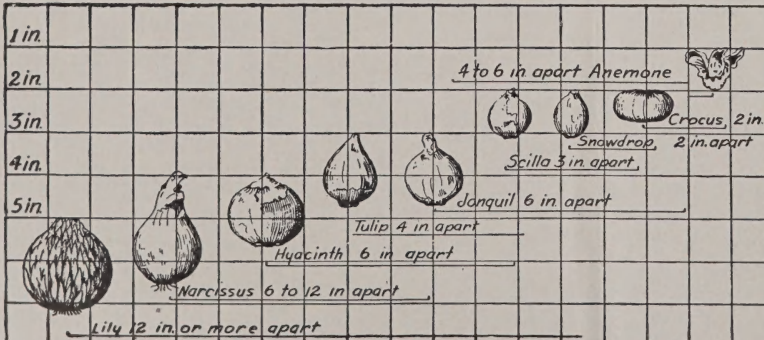 1 in.
2 in.
3 in.
4 in.
5 in.
4 to 6 in. apart Anemone
Crocus, 2 in.
Snowdrop, 2 in. apart
Scilla 3 in. apart
Jonquil 6 in. apart
Tulip 4 in apart
Hyacinth 6 in apart
Narcissus 6 to 12 in apart
Lily 12 in. or more apart